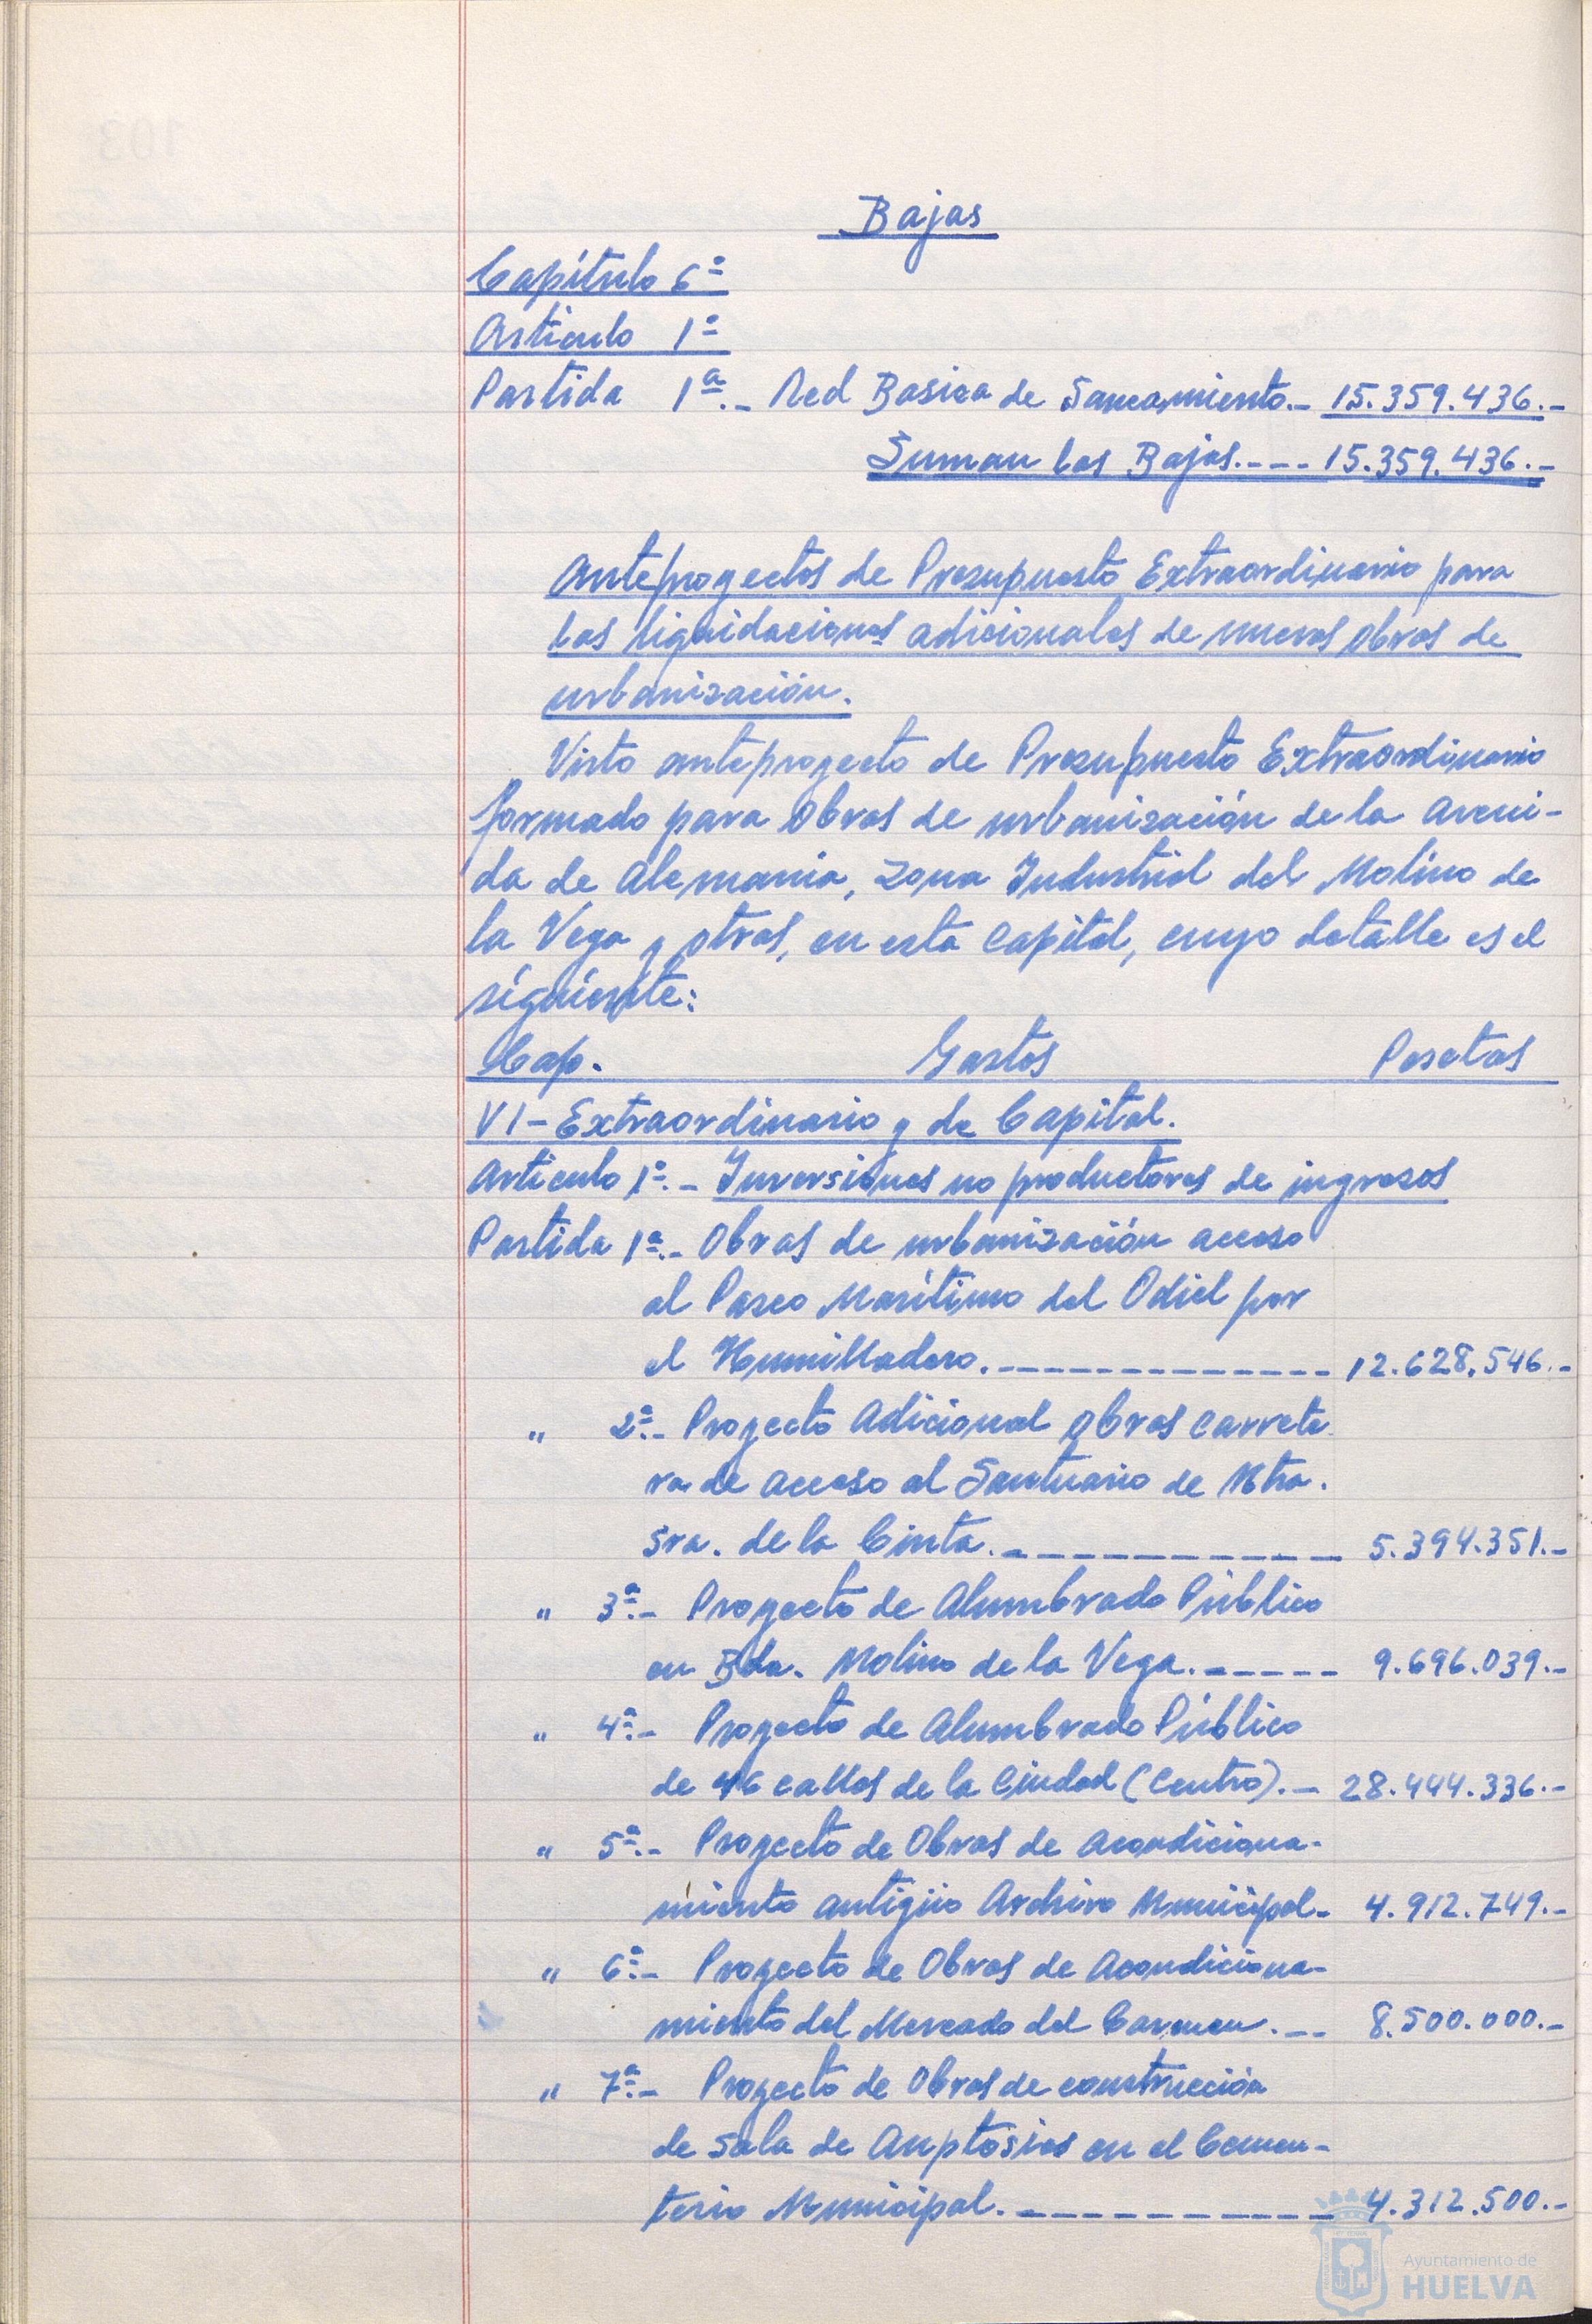 Bajas
Capítulo 6º
Artículo 1º
Partida 1ª.- Red Basica de Saneamiento.- 15.359.436.-
Suman las Bajas.---- 15.359.436.-
Anteproyectos de Presupuesto Extraordinario para
las liquidaciones adicionales de nuevas obras de
urbanización.
Visto anteproyecto de Presupuesto Extraordinario
formado para Obras de urbanización de la Aveni-
da de Alemania, Zona Industrial del Molino de
la Vega y otras, en esta Capital, cuyo detalle es el
siguiente:
Cap. Gastos Pesetas
VI- Extraordinario y de Capital.
Artículo 1º.- Inversiones no productoras de ingresos
Partida 1ª.- Obras de urbanización acceso
al Paseo Marítimo del Odiel por
el Humilladero.------------- 12.628.546.-
" 2ª.- Proyecto Adicional obras carrete
ra de acceso al Santuario de Ntra.
Sra. de la Cinta.----------- 5.394.351.-
" 3ª.- Proyecto de Alumbrado Público
en Bda. Molino de la Vega.------ 9.696.039.-
" 4ª.- Proyecto de Alumbrado Público
de 46 calles de la Ciudad (Centro).- 28.444.336.-
" 5ª.- Proyecto de Obras de Acondiciona-
miento antigüo Archivo Municipal- 4.912.749.-
" 6ª.- Proyecto de Obras de Acondiciona-
miento del Mercado del Carmen.-- 8.500.000.-
" 7ª.- Proyecto de Obras de construcción
de Sala de Auptosias en el Cemen-
terio Municipal.----------- 4.312.500.-
Ayuntamiento de
HUELVA